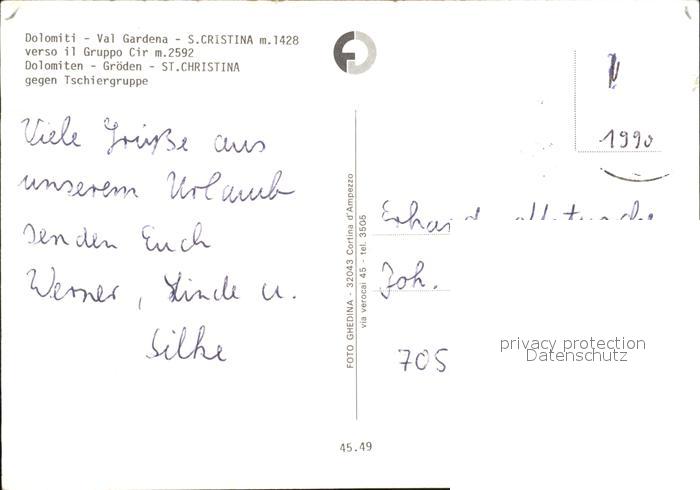 Dolomiti - Val Gardena - S.CRISTINA m.1428
verso il Gruppo Cir m.2592
Dolomiten - Gröden - ST.CHRISTINA
gegen Tschiergruppe
Viele Grüße aus
unserem Urlaub
senden Euch
Werner, Linde u.
Silke
FOTO GHEDINA - 32043 Cortina d'Ampezzo
via verocai 45 - tel. 3505
45.49
1990
Joh.
705
privacy protection
Datenschutz